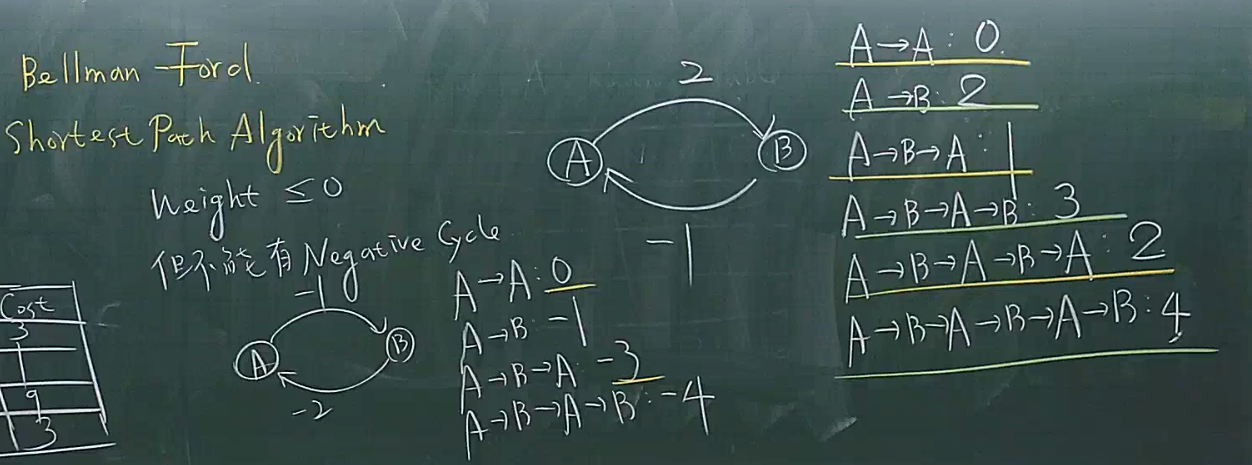 Bellman-Ford
Shortest Path Algorithm
Weight ≤ 0
但不能有 Negative Cycle
-1
A
B
-2
Cost
3
1
9
3
A→A: 0
A→B: -1
A→B→A: -3
A→B→A→B: -4
2
A
B
-1
A→A: 0
A→B: 2
A→B→A: 1
A→B→A→B: 3
A→B→A→B→A: 2
A→B→A→B→A→B: 4